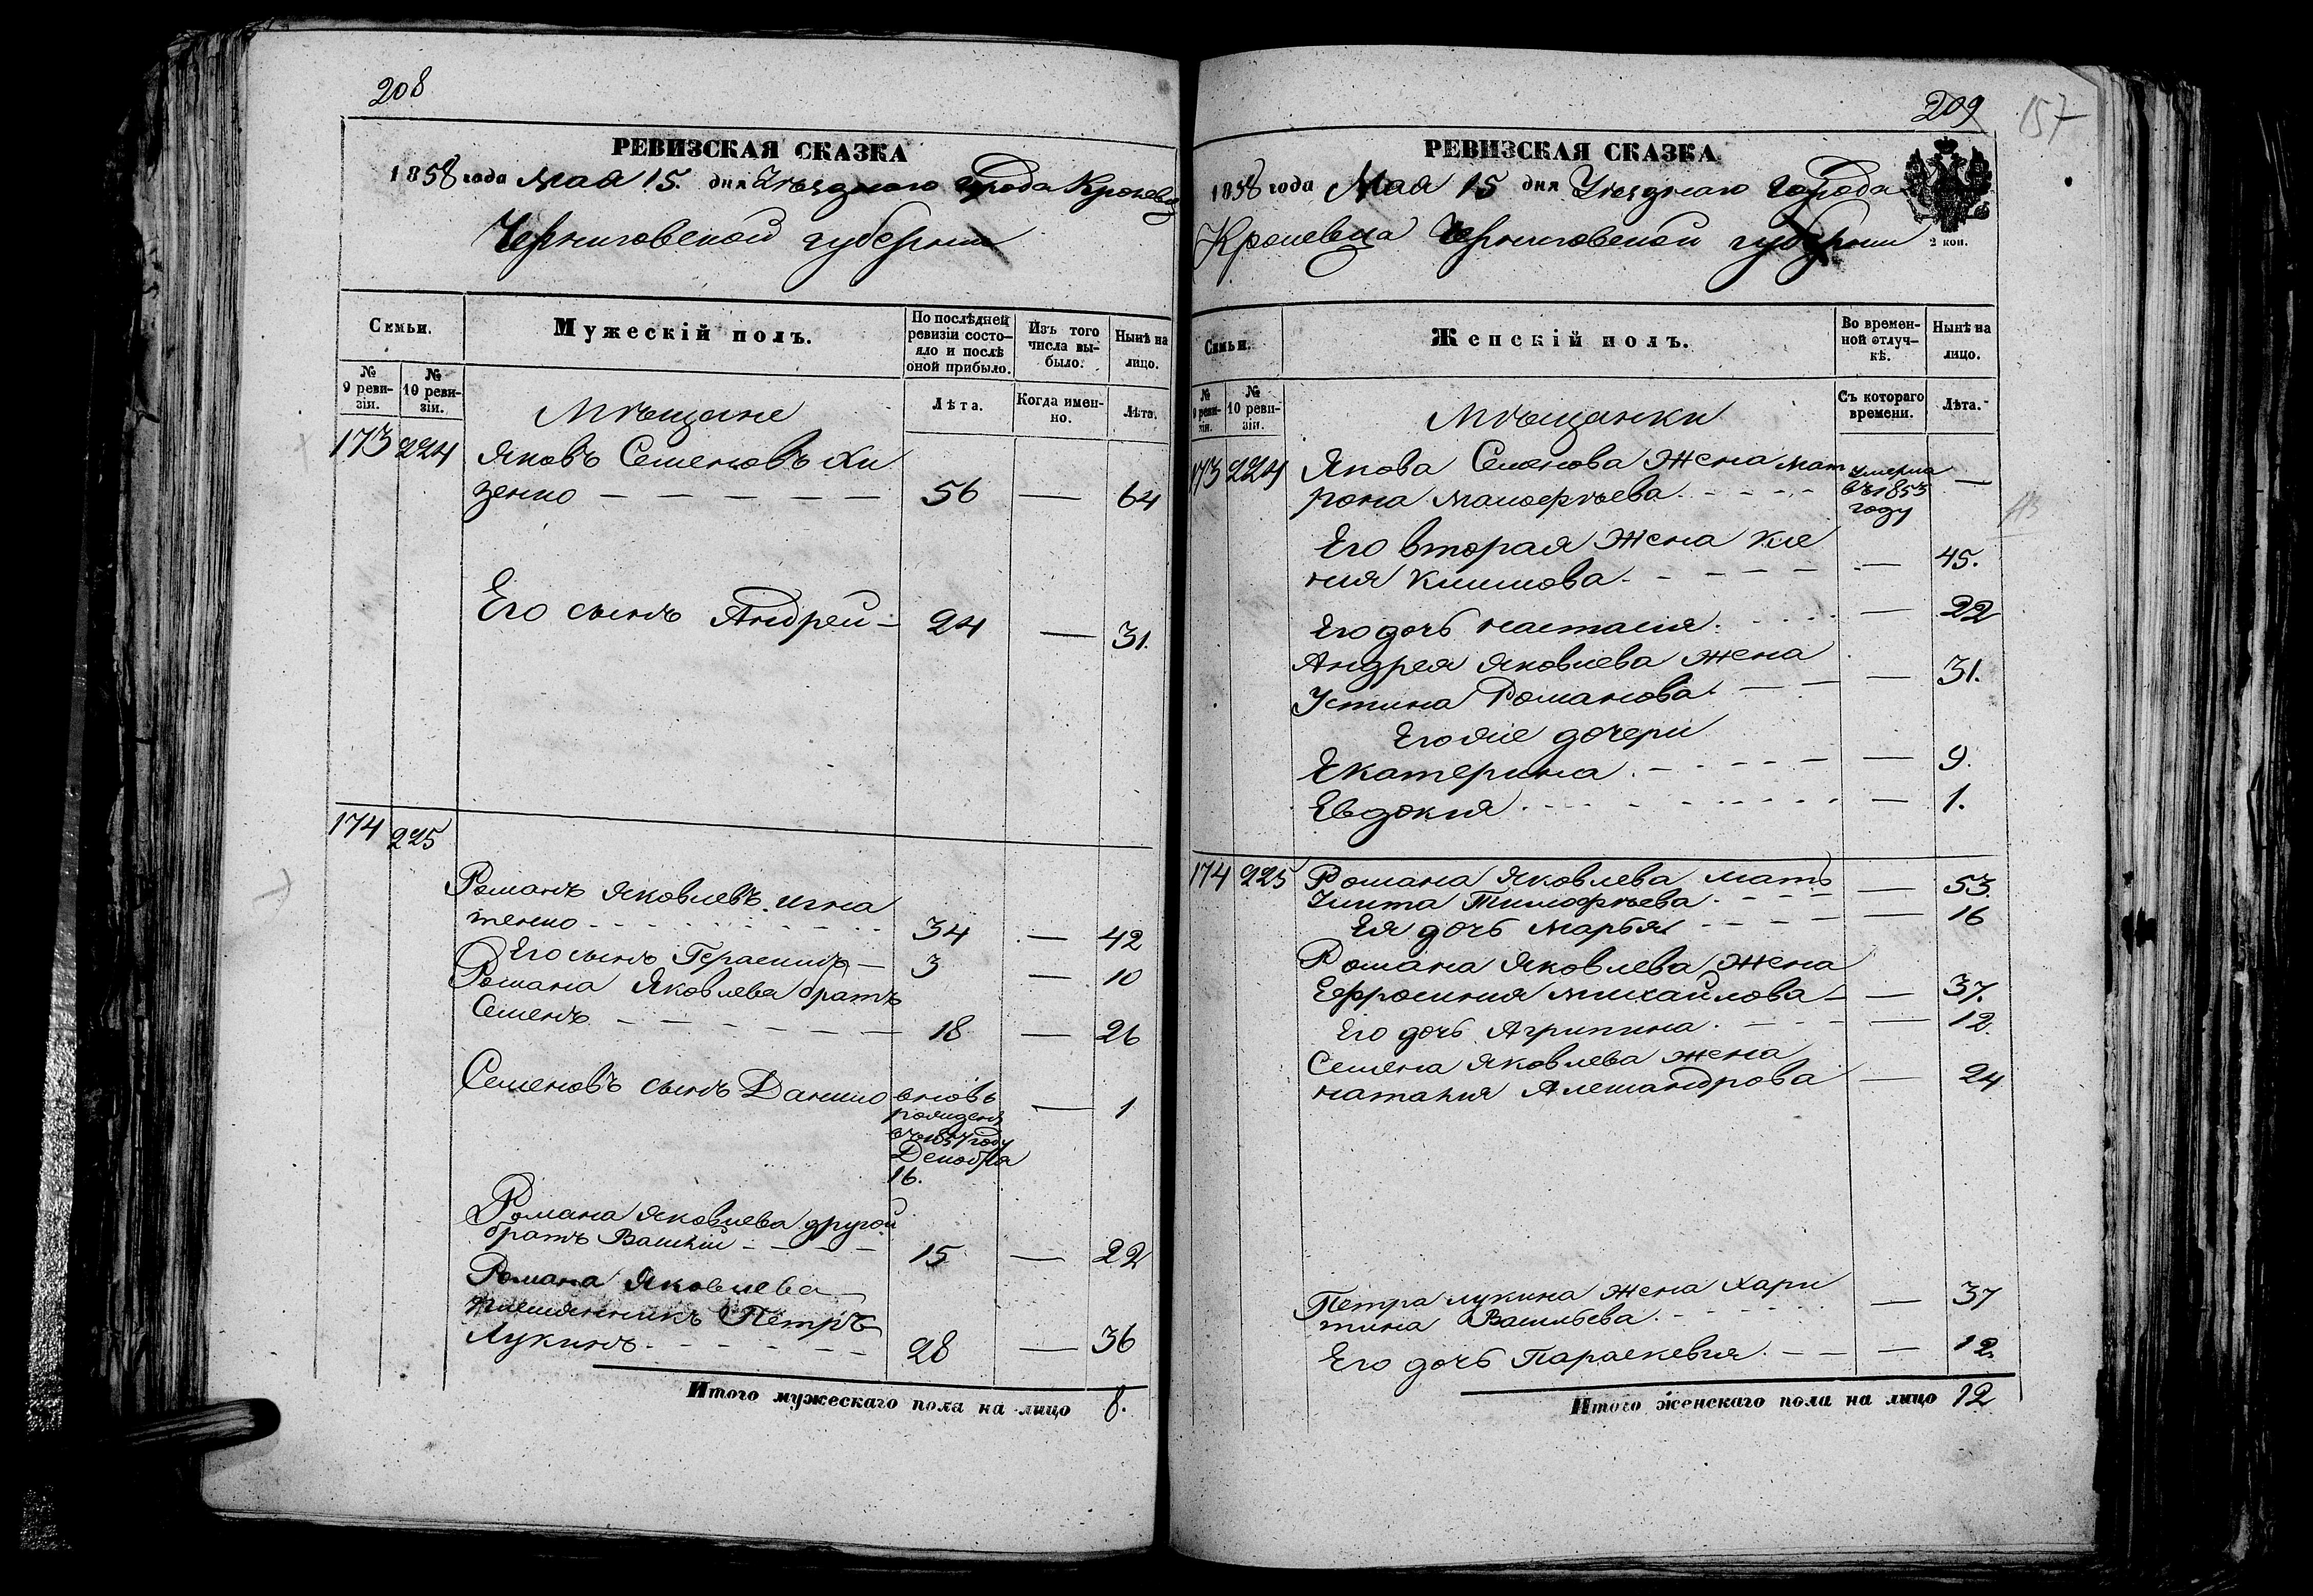 208
РЕВИЗСКАЯ СКАЗКА
1858 года Мая 15. дня Уѣзднаго города Кролевца
Черниговской губернии
Семьи.
Мужескій полъ.
По послѣдней ревизіи состояло и послѣ оной прибыло.
Изъ того числа выбыло.
Нынѣ на лицо.
№ 9 ревизіи.
№ 10 ревизіи.
Лѣта.
Когда именно.
Лѣта.
Мѣщане
173 224 Яковъ Семеновъ Хи
зенко — — — — — 56 — 64
Его сынъ Андрей — 24 — 31.
174 225
Романъ Яковлевъ Игна
тенко 34 — 42
Его сынъ Герасимъ — 3 — 10
Романа Яковлева братъ
Семенъ — — — — — 18 — 26
Семеновъ сынъ Данило вновь — 1
рожденъ
въ 1857 году
Декабря
16.
Романа Яковлева другой
братъ Василій — — — 15 — 22
Романа Яковлева
племянникъ Петръ
Лукинъ 28 — 36
Итого мужескаго пола на лицо 8.
209
157
РЕВИЗСКАЯ СКАЗКА
1858 года Мая 15 дня Уѣзднаго города
Кролевца Черниговской губернии
2 коп.
Семьи.
Женскій полъ.
Во временной отлучкѣ.
Нынѣ на лицо.
№ 9 ревизіи.
№ 10 ревизіи.
Съ котораго времени.
Лѣта.
Мѣщанки
173 224 Якова Семенова жена Мат умерла
рона въ 1853 —
году
Его вторая жена Ксе
ния Климова — — 45.
Его дочь Настасия — 22
Андрея Яковлева жена
Устина Романова — 31.
Его же дочери
Екатерина — 9.
Евдокия — 1.
174 225 Романа Яковлева мать — 53.
Улита Тимофѣева
Ея дочь Марья — 16
Романа Яковлева жена
Ефросиния Михайлова — — 37.
Его дочь Агрипина — 12.
Семена Яковлева жена
Наталия Александрова — 24
Петра Лукина жена Хари — 37
тина Васильева
Его дочь Параскевия — 12.
Итого женскаго пола на лицо 12